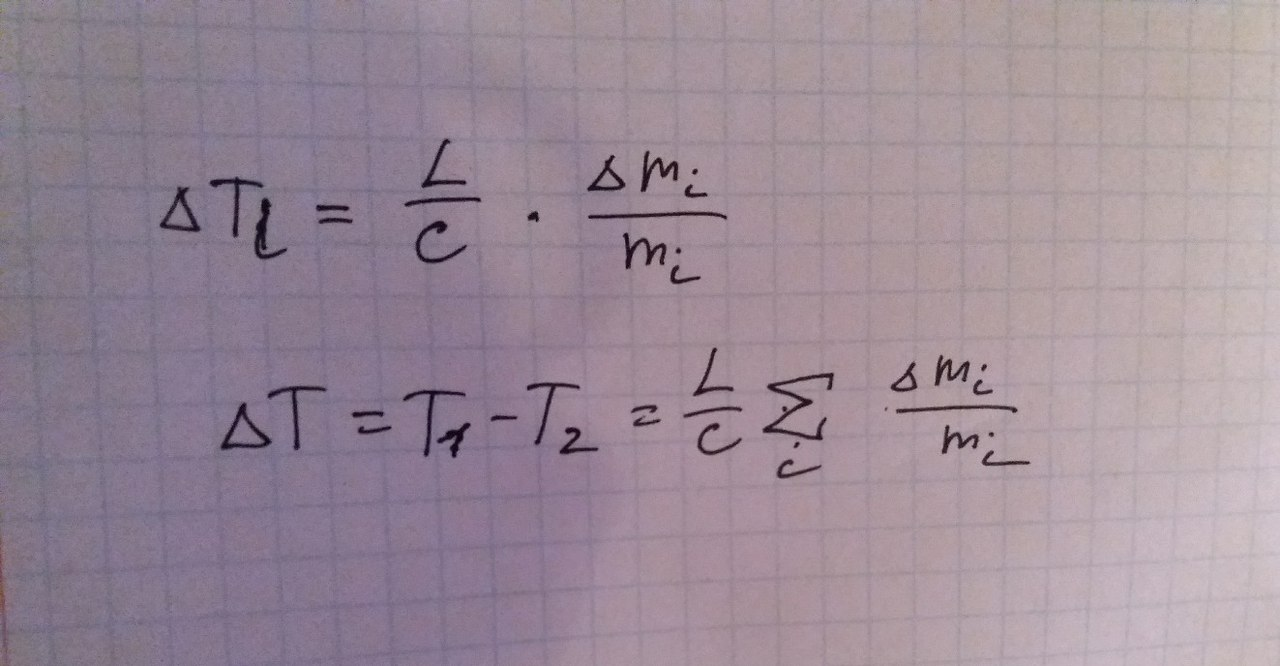 ΔTᵢ = L/c · Δmᵢ/mᵢ
ΔT = T₁ - T₂ = L/c ∑ᵢ Δmᵢ/mᵢ